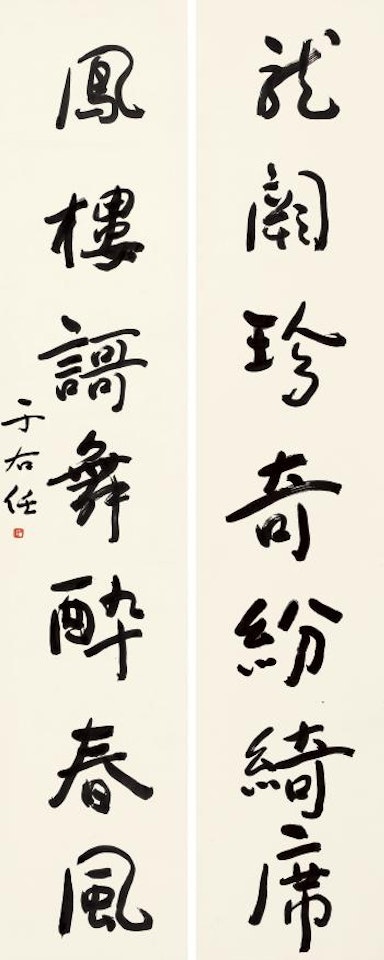 龍闕珍奇紛綺席
鳳樓謌舞醉春風
于右任